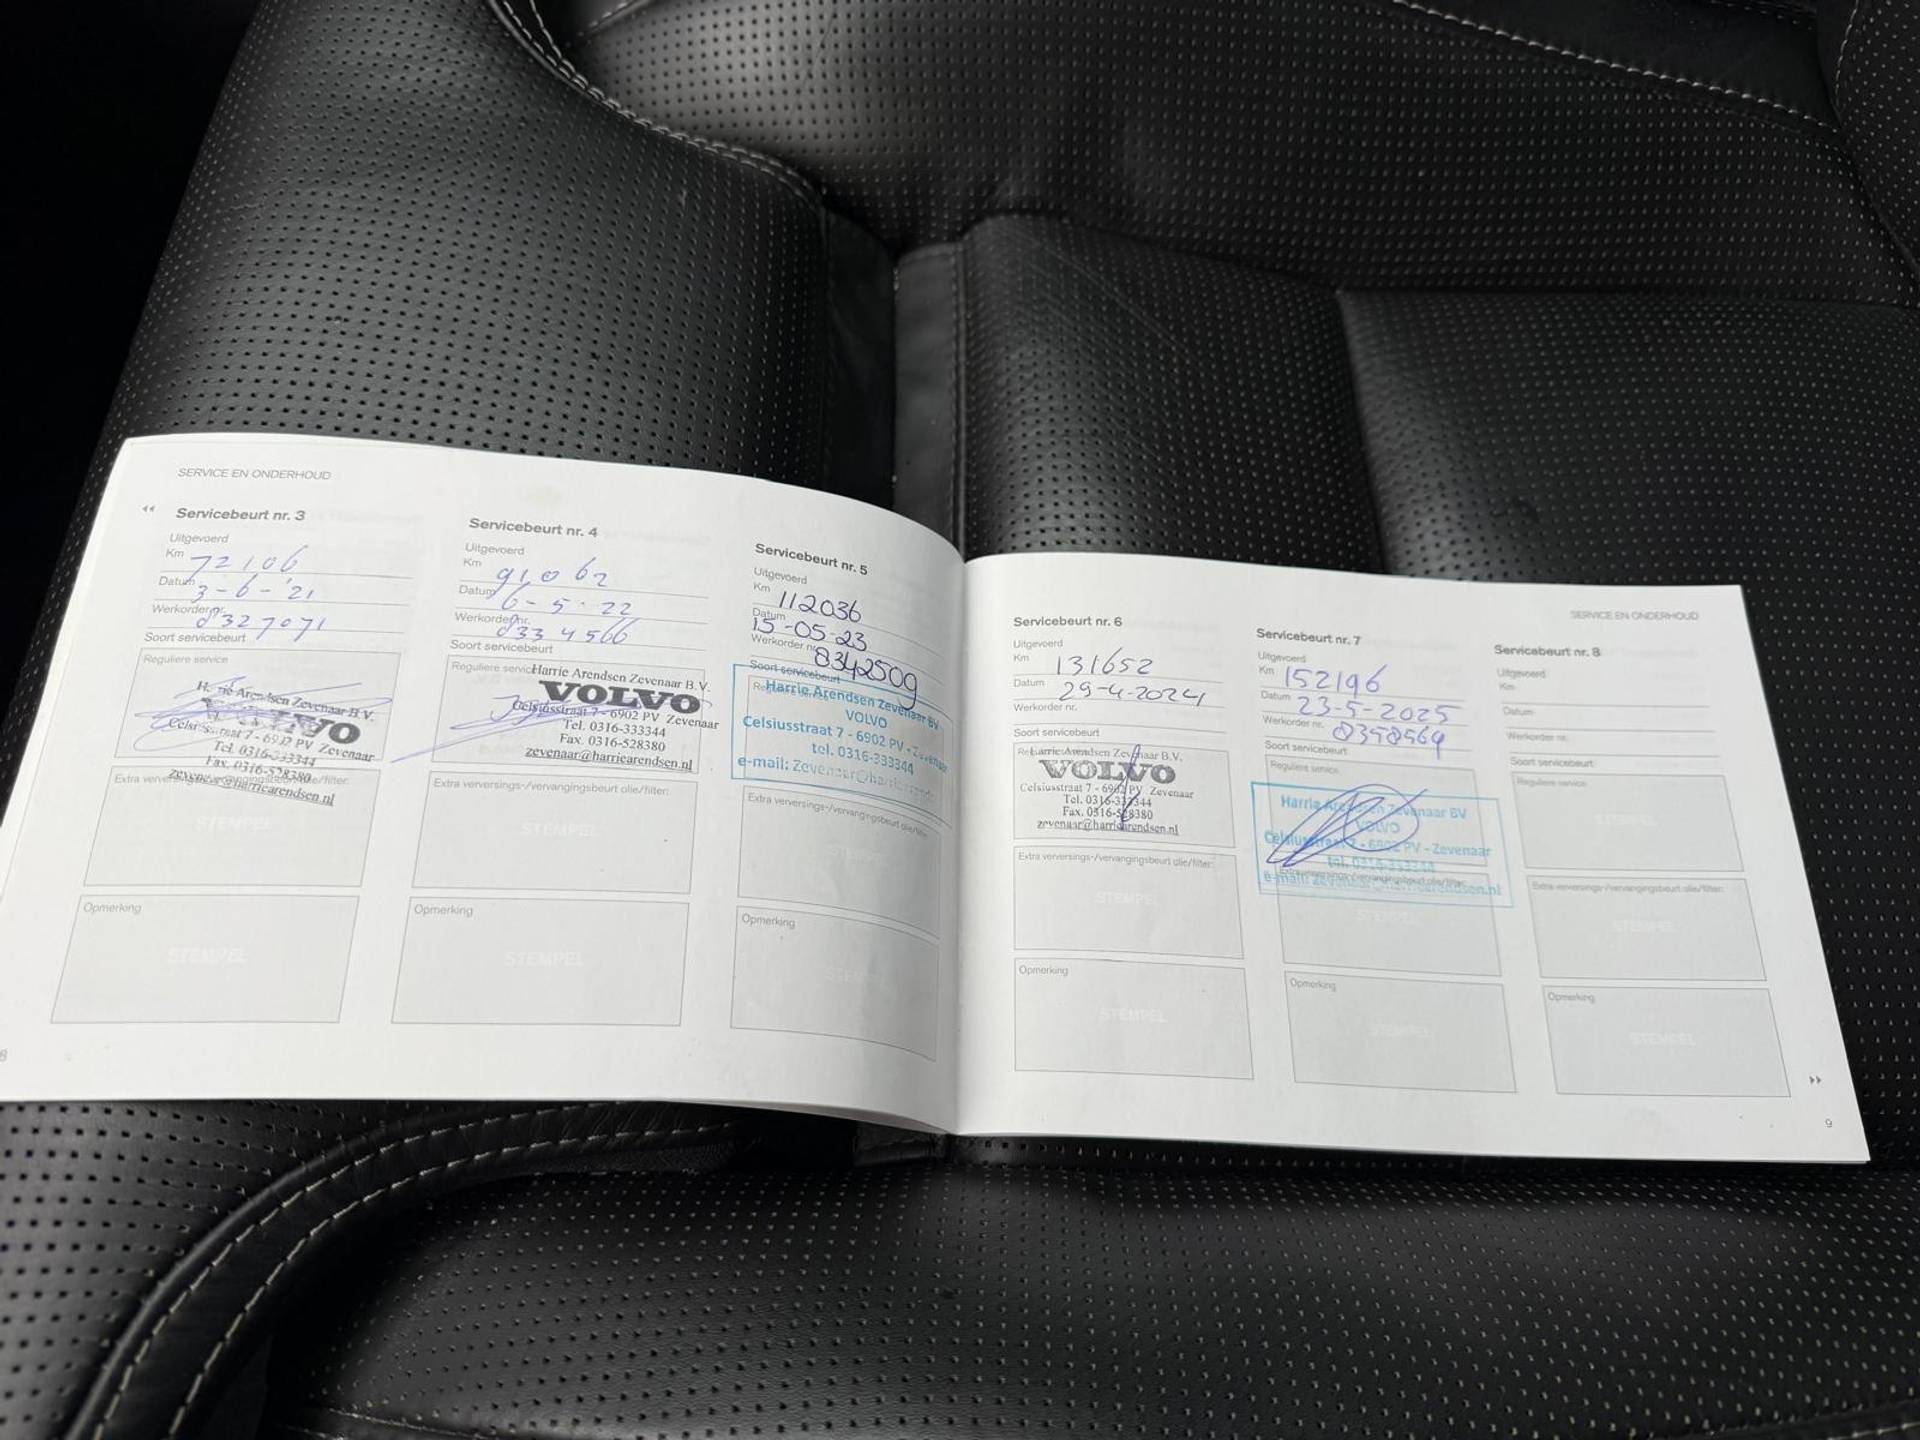 SERVICE EN ONDERHOUD
Servicebeurt nr. 3
Uitgevoerd
Km 72106
Datum 3-6-'21
Werkorder nr. 8327071
Soort servicebeurt
Reguliere service
Harrie Arendsen Zevenaar B.V.
VOLVO
Celsiusstraat 7 - 6902 PV Zevenaar
Tel. 0316-333344
Fax. 0316-528380
zevenaar@harriearendsen.nl
Extra verversings-/vervangingsbeurt olie/filter:
STEMPEL
Opmerking
STEMPEL
8
Servicebeurt nr. 4
Uitgevoerd
Km 91062
Datum 6-5-22
Werkorder nr. 8334566
Soort servicebeurt
Reguliere service
Harrie Arendsen Zevenaar B.V.
VOLVO
Celsiusstraat 7 - 6902 PV Zevenaar
Tel. 0316-333344
Fax. 0316-528380
zevenaar@harriearendsen.nl
Extra verversings-/vervangingsbeurt olie/filter:
STEMPEL
Opmerking
STEMPEL
Servicebeurt nr. 5
Uitgevoerd
Km 112036
Datum 15-05-23
Werkorder nr. 8342509
Soort servicebeurt
Harrie Arendsen Zevenaar BV
VOLVO
Celsiusstraat 7 - 6902 PV - Zevenaar
tel. 0316-333344
e-mail: Zevenaar@harriearendsen
Extra verversings-/vervangingsbeurt olie/filter:
STEMPEL
Opmerking
STEMPEL
SERVICE EN ONDERHOUD
Servicebeurt nr. 6
Uitgevoerd
Km 131652
Datum 29-4-2024
Werkorder nr.
Soort servicebeurt
Harrie Arendsen Zevenaar B.V.
VOLVO
Celsiusstraat 7 - 6902 PV Zevenaar
Tel. 0316-333344
Fax. 0316-528380
zevenaar@harriearendsen.nl
Extra verversings-/vervangingsbeurt olie/filter:
STEMPEL
Opmerking
STEMPEL
Servicebeurt nr. 7
Uitgevoerd
Km 152196
Datum 23-5-2025
Werkorder nr. 8358569
Soort servicebeurt
Reguliere service
Harrie Arendsen Zevenaar BV
VOLVO
Celsiusstraat 7 - 6902 PV - Zevenaar
tel. 0316-333344
e-mail: Zevenaar@harriearendsen.nl
Extra verversings-/vervangingsbeurt olie/filter:
STEMPEL
Opmerking
STEMPEL
Servicebeurt nr. 8
Uitgevoerd
Km
Datum
Werkorder nr.
Soort servicebeurt
Reguliere service
STEMPEL
Extra verversings-/vervangingsbeurt olie/filter:
STEMPEL
Opmerking
STEMPEL
9